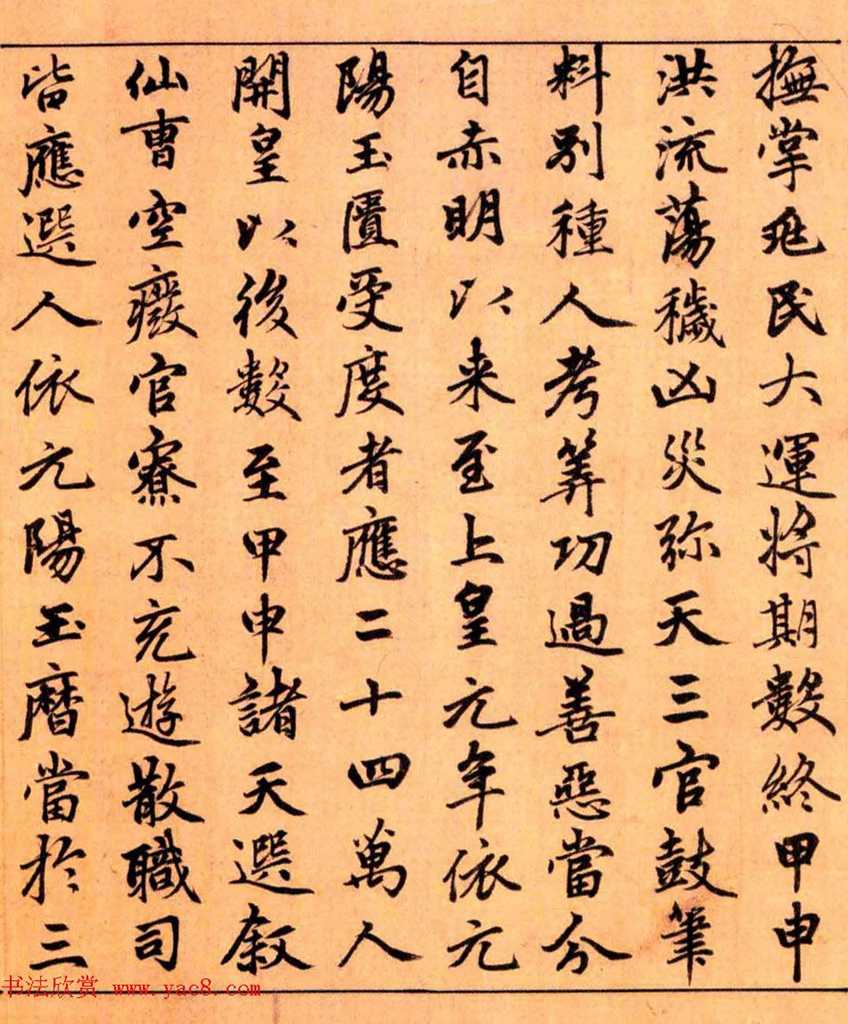 撫掌兆民大運將期數終甲申
洪流蕩穢凶災弥天三官鼓筆
料別種人考筭功過善惡當分
自赤明以来至上皇元年依元
陽玉匱受度者應二十四萬人
開皇以後數至甲申諸天選叙
仙曹空癈官寮不充遊散職司
皆應選人依元陽玉暦當於三
书法欣赏 www.yac8.com